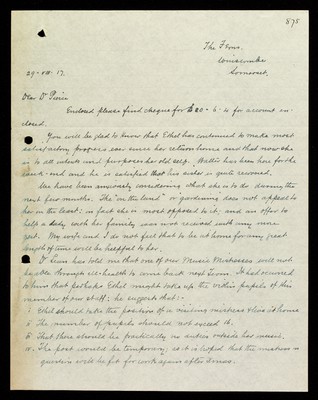 878
The Ferns.
Somerset.
29 - VIII - 17.
Dear Dr Pierce
Enclosed please find cheque for £20 - 6 - 4 for account en-
closed.
You will be glad to know that Ethel has continued to make most
satisfactory progress ever since her return home and that now she
is to all intents and purposes her old self. Walter has been here for the
week-end and he is satisfied that his sister is quite recovered.
We have been anxiously considering what she is to do during the
next few months. The "on the land" or gardening does not appeal to
her in the least: in fact she is most opposed to it; and an offer to
help a lady with her family was not received with any more
zest. My wife and I do not feel that to be at home for any great
length of time will be helpful to her.
Dr has told me that one of our Music Mistresses will not
be able through ill-health to come back next Term. It had occurred
to him that perhaps Ethel might take up the pupils of this
member of our staff: he suggests that:-
Ethel should take the position of a visiting mistress & live at home
The number of pupils should not exceed
That there should be practically no duties outside her music.
The post would be temporary; as it is hoped that the mistress in
question will be fit for work again after Xmas.